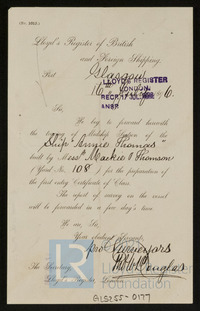 Lloyd's Register of British
and Foreign Shipping.
Port Glasgow
LLOYD'S REGISTER
LONDON.
RECD. 17 JUL
ANSD
16th
Sir,
We beg to forward herewith
the Midship Section of the
Ship "Annie Thomas"
built by Messrs Mackie & Thomson
Yard No. 108 for the preparation of the
first entry Certificate of Class.
The report of survey on the vessel
will be forwarded in a few days' time.
We are, Sir,
Your obedient Servants,
pro Surveyors
Douglas
The Secretary
Lloyd's Register, London